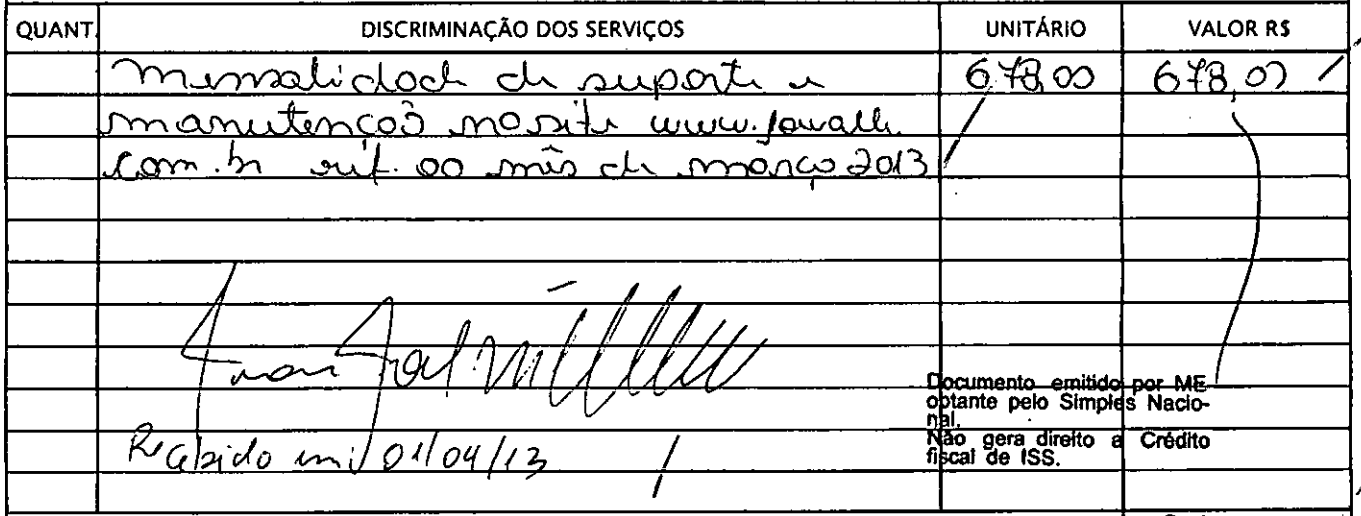 QUANT. DISCRIMINAÇÃO DOS SERVIÇOS UNITÁRIO VALOR R$
Mensalidade de suporte e 678,00 678,00
manutenção no site www.
com.br ref. ao mês de março 2013
Documento emitido por ME
optante pelo Simples Nacio-
nal.
Não gera direito a Crédito
fiscal de ISS.
Recebido em 01/04/13